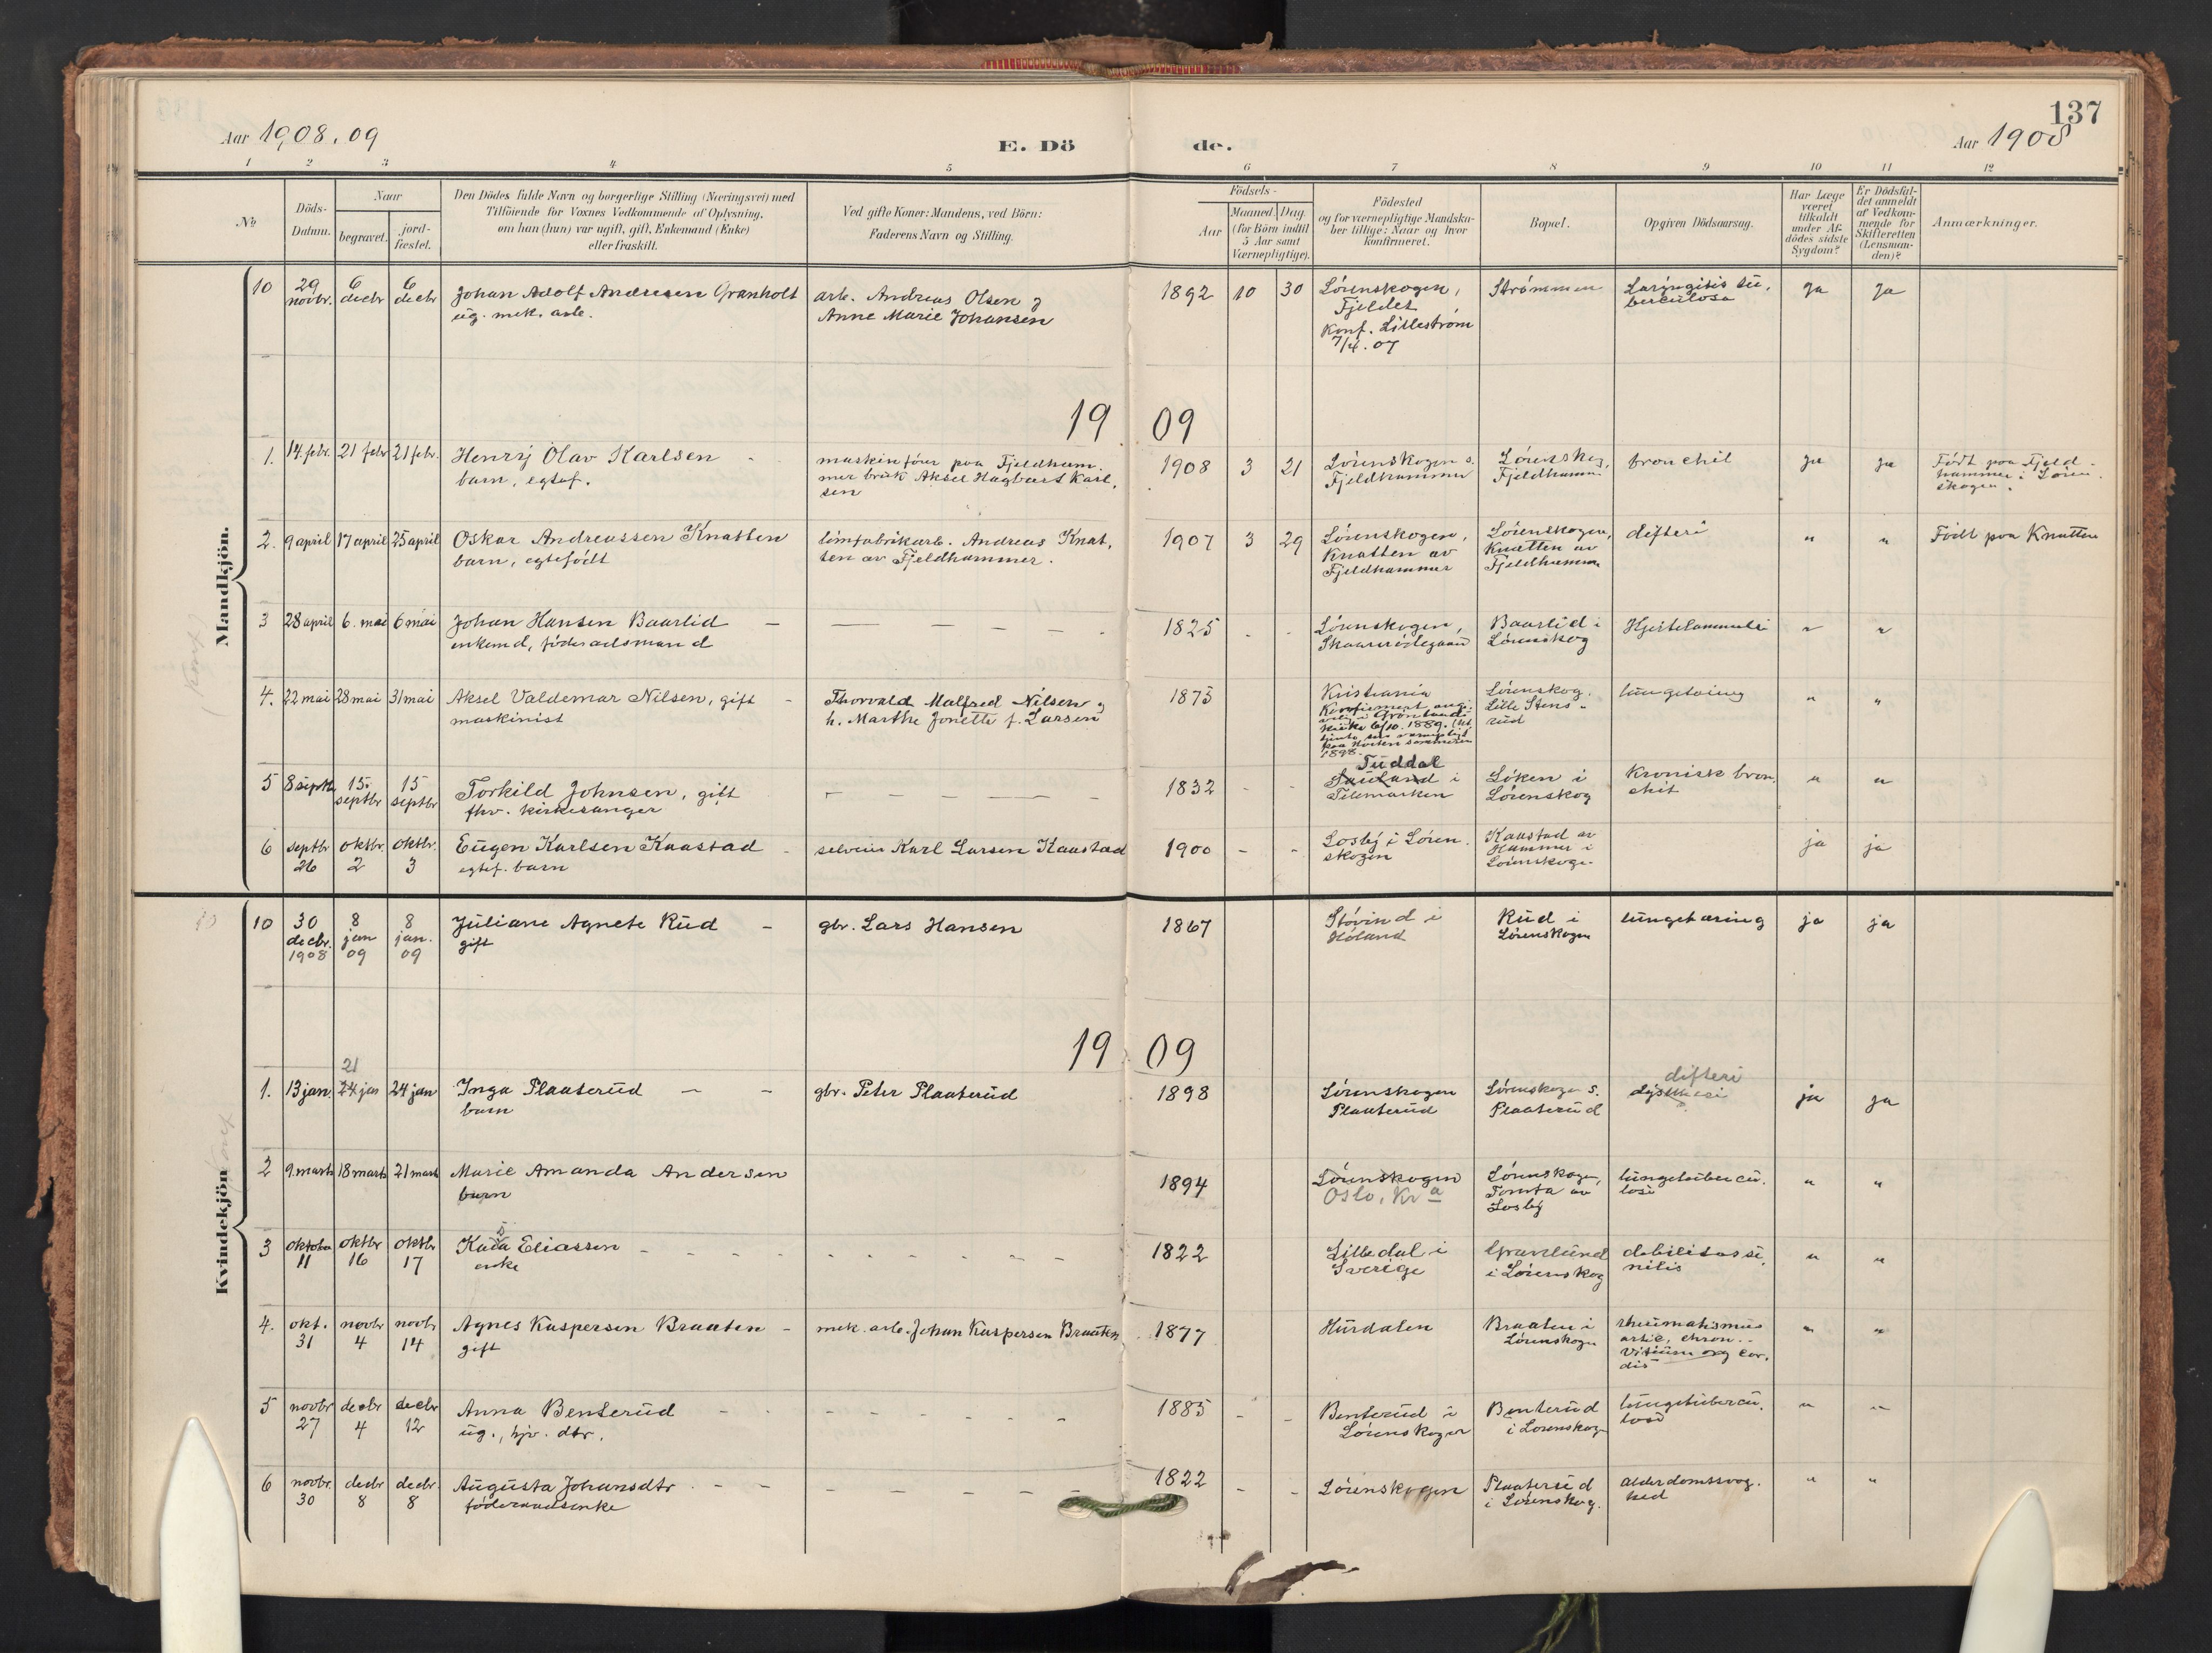 137
Aar 1908.09
E. Dö de.
Aar 1908
1 2 3 4 5 6 7 8 9 10 11 12
No
Döds-Datum.
Naar
begravet.
jord-fæstet.
Den Dödes fulde Navn og borgerlige Stilling (Næringsvei) med
Tilföiende for Voxnes Vedkommende af Oplysning,
om han (hun) var ugift, gift, Enkemand (Enke)
eller fraskilt.
Ved gifte Koner: Mandens, ved Börn:
Faderens Navn og Stilling.
Födsels-
Aar
Maaned. Dag.
(for Börn indtil
5 Aar samt
Værnepligtige).
Födested
og for værnepligtige Mandska-
ber tillige: Naar og hvor
konfirmeret.
Bopæl.
Opgiven Dödsaarsag.
Har Læge
været
tilkaldt
under Af-
dödes sidste
Sygdom?
Er Dödsfal-
det anmeldt
af Vedkom-
mende for
Skifteretten
(Lensman-
den)?
Anmærkninger.
Mandkjön.
10 29 novbr. 6 decbr 6 decbr Johan Adolf Andresen Granholt arb. Andreas Olsen og 1892 10 30 Lørenskogen, Strømmen Laryngitis tu- ja ja
ug. mek. arb. Anne Marie Johansen Fjeldet berculosa
Konf. Lillestrøm
7/4.07
19 09
1. 14. febr. 21 febr 21 febr. Henry Olav Karlsen - maskinfører paa Fjeldham- 1908 3 21 Lørenskogen s. Lørenskog, bronchit ja ja Født paa Fjeld-
barn, egtef. mer bruk Aksel Hagbart Karl- Fjeldhammer Fjeldhamm. hammer i Løren-
sen skogen.
2. 9 april 17 april 25 april Oskar Andreassen Knatten limfabrikarb. Andreas Knat- 1907 3 29 Lørenskogen, Lørenskogen, difteri " " Født paa Knatten
barn, egtefødt ten av Fjeldhammer. Knatten av Knatten av
Fjeldhammer Fjeldhamm
3 28 april 6. mai 6 mai Johan Hansen Baarlid - 1825 Lørenskogen, Baarlid i Hjertelammelse " "
enkemd, føderaadsmand Lørenskog
4. 22 mai 28 mai 31 mai Aksel Valdemar Nilsen, gift - Thorvald Malfred Nilsen og 1873 Kristiania Lørenskog. lungetæring " "
maskinist h. Marthe Jonette f. Larsen Lille Stens-
rud
Grønlands
kirke 6/10. 1889.
1898.
Tuddal
5 8 septbr 15. septbr 15 septbr Torkild Johnsen, gift 1832 Sauland i Løken i Kronisk bron- " "
fhv. kirkesanger Telemarken Lørenskog chit
6 septbr 26 oktbr. 2 oktbr. 3 Eugen Karlsen Kaastad - selveier Karl Larsen Kaastad 1900 Losby i Løren- Kaastad av ja ja
egtef. barn skogen Hammer i
Lørenskogen
Kvindekjön
10 30 decbr. 1908 8 jan 09 8 jan. 09 Juliane Agnete Rud - gbr. Lars Hansen 1867 Støvind i Rud i lungetæring ja ja
gift Høland Lørenskogen
19 09
21
difteri
1. 13 jan. 24 jan 24 jan Inga Plaaterud - - gbr. Peter Plaaterud 1898 Lørenskogen Lørenskogen s. ja ja
barn Plaaterud Plaaterud
2 9. marts 18 marts 21 marts Marie Amanda Andersen 1894 Lørenskogen Lørenskogen, lungetubercu- " "
barn Oslo, Kra Tomta av losi
Losby
3 oktober 11 oktbr 16 oktbr 17 Kaisa Eliassen 1822 Lilledal i Gravlund debilitas se- " "
enke Sverige i Lørenskog nilis
4. okt. 31 novbr 4 novbr 14 Agnes Kaspersen Braaten - mek. arb. Johan Kaspersen Braaten 1877 Hurdalen Braaten i rheumatismus " "
gift Lørenskogen artic. chron.-
vitium org cor-
dis
5 novbr 27 decbr 4 decbr 12 Anna Benterud 1885 Benterud i Benterud lungetubercu- " "
ug., hjv. dtr. Lørenskogen i Lørenskog losi
6 novbr. 30 decbr 8 decbr. 8 Augusta Johansdtr 1822 Lørenskogen Plaaterud alderdomssvag- " "
føderaadsenke i Lørenskog. hed